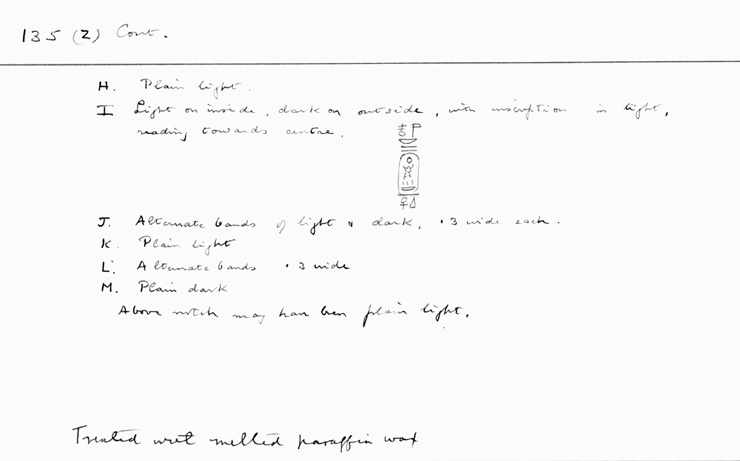 135 (2) Cont.
H. Plain light.
I Light on inside, dark on outside, with inscription in light,
reading towards centre.
J. Alternate bands of light & dark, .3 wide each.
K. Plain light
L. Alternate bands .3 wide
M. Plain dark
Above notch may have been plain light.
Treated with melted paraffin wax